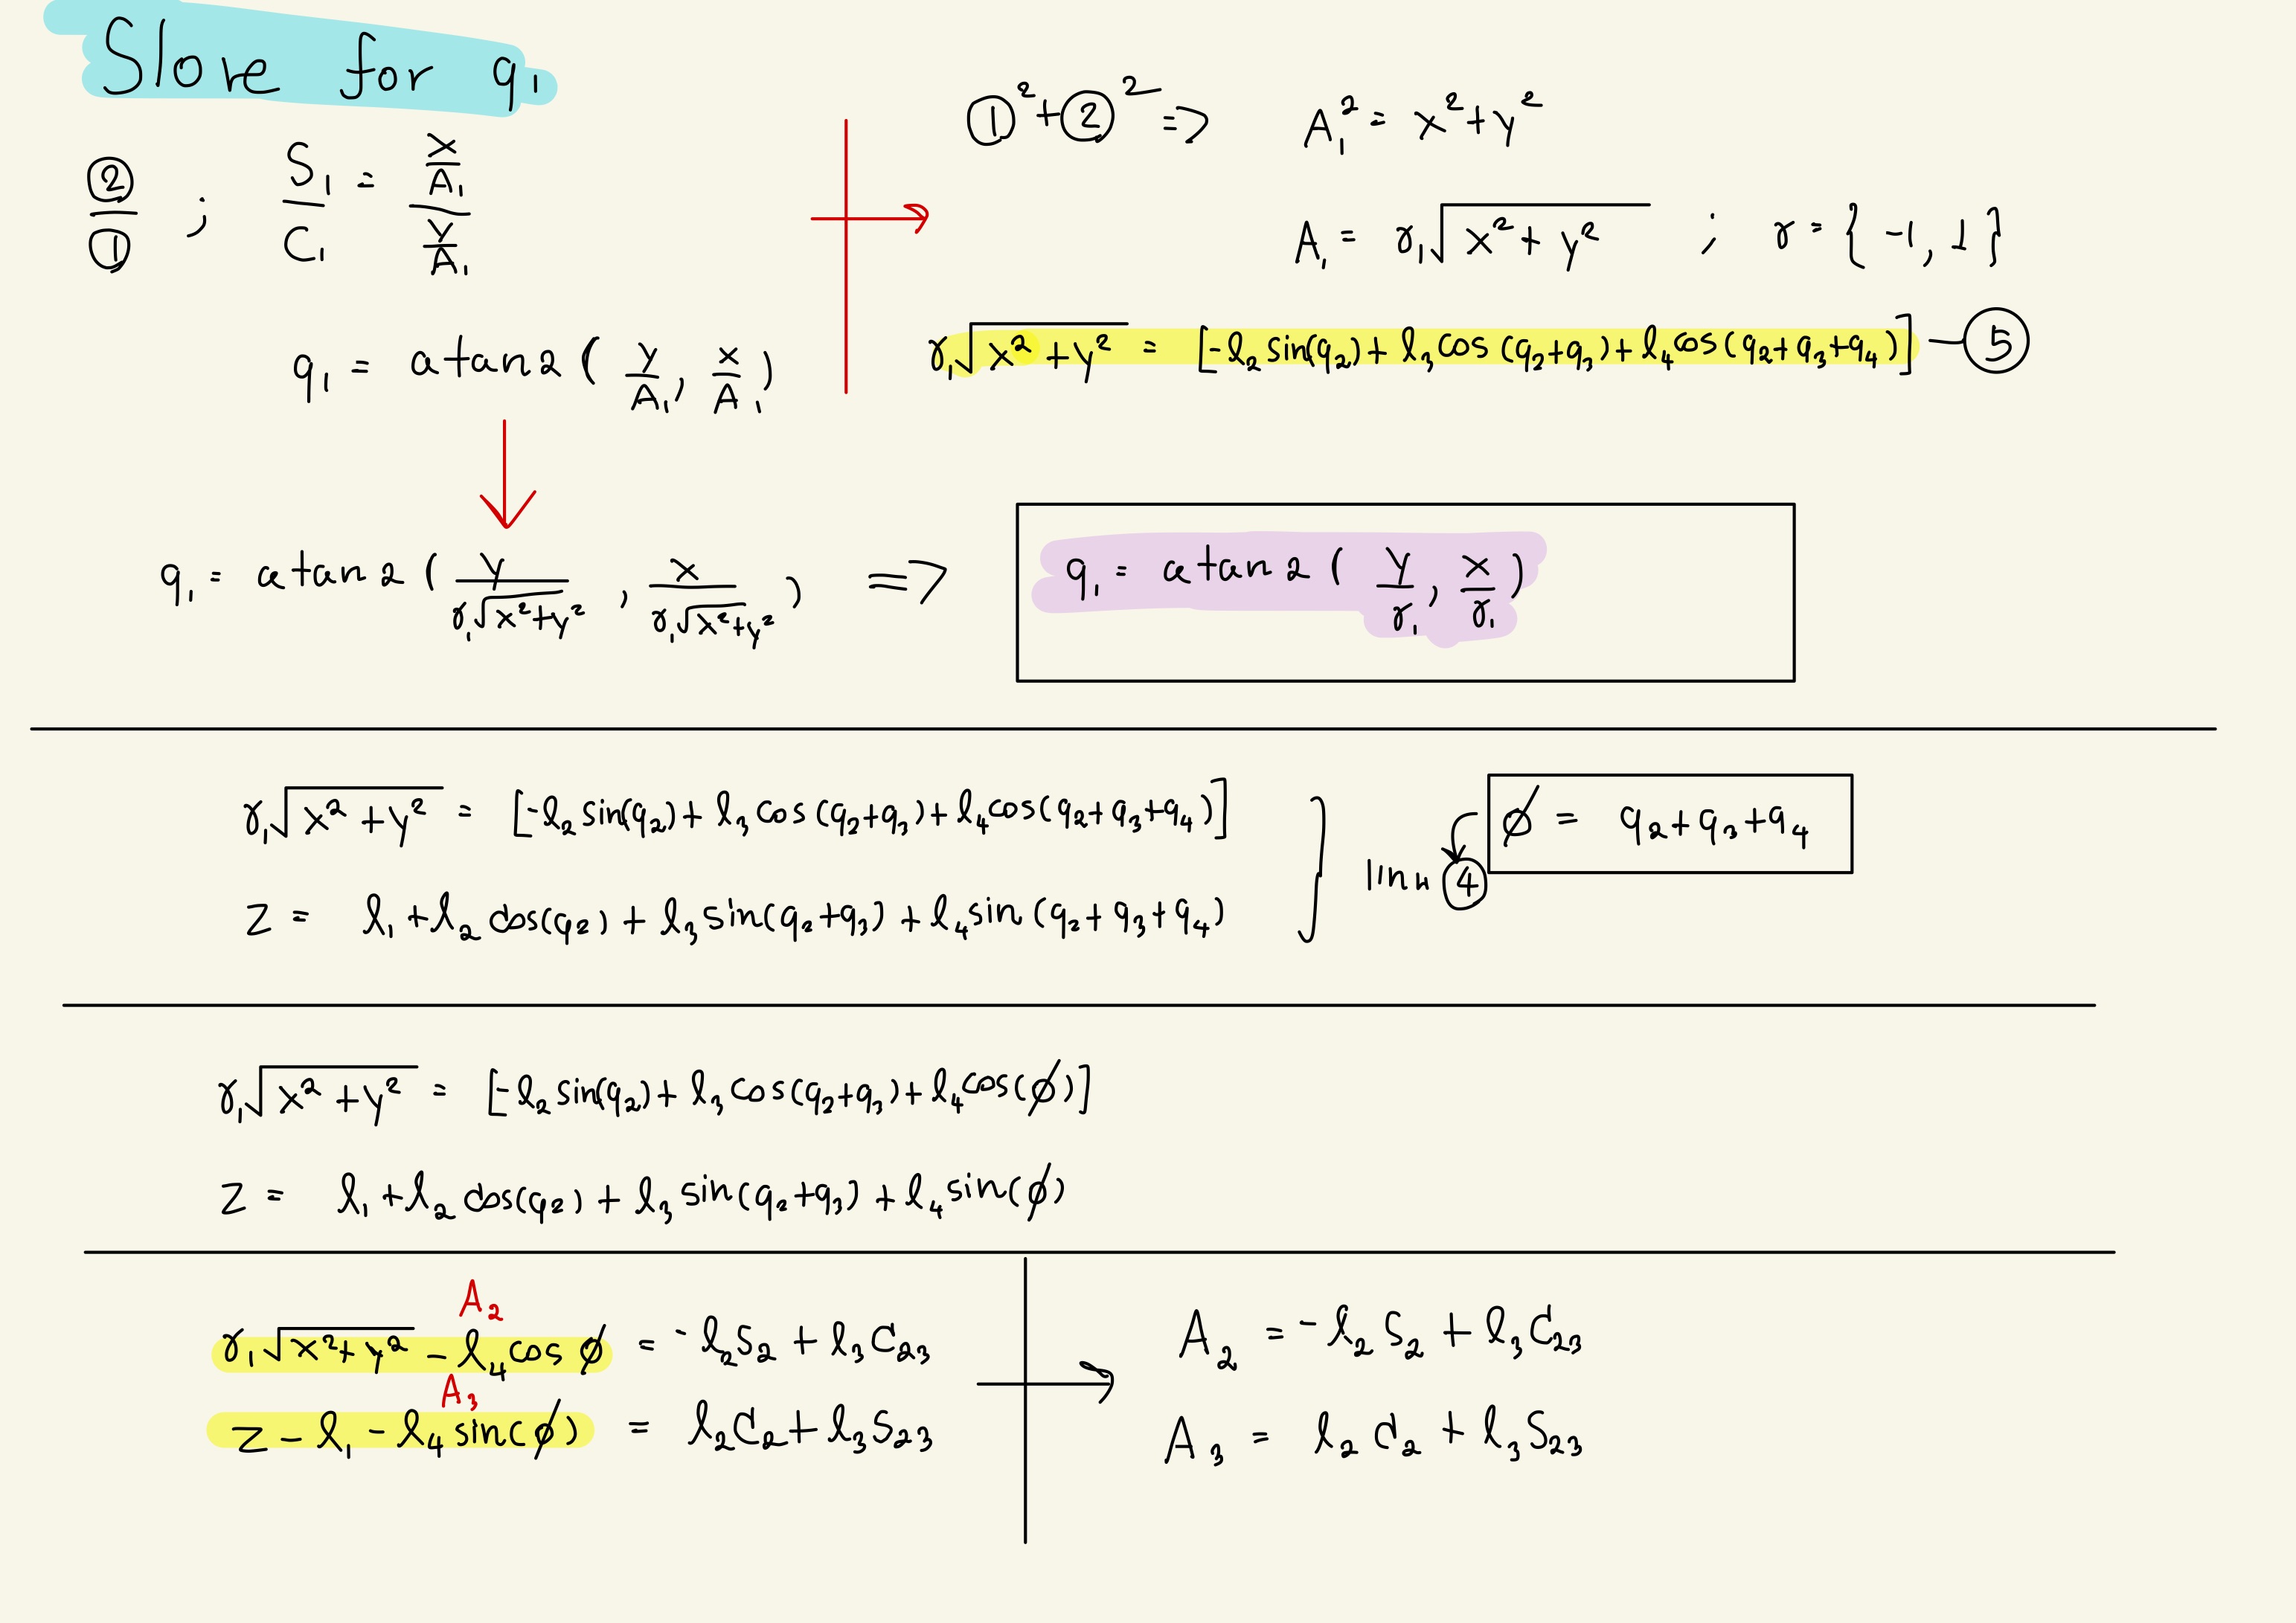 Slove for q₁
②/① ; S₁/C₁ = (x/A₁)/(y/A₁)
q₁ = atan2 ( y/A₁ , x/A₁ )
①² + ②² => A₁² = x² + y²
A₁ = γ₁√(x² + y²) ; γ = { -1, 1 }
γ₁√(x² + y²) = [-l₂ sin(q₂) + l₃ cos (q₂+q₃) + l₄ cos (q₂+q₃+q₄)] — ⑤
q₁ = atan2 ( y/(γ₁√(x²+y²)) , x/(γ₁√(x²+y²)) ) => q₁ = atan2 ( y/γ₁ , x/γ₁ )
γ₁√(x² + y²) = [-l₂ sin(q₂) + l₃ cos (q₂+q₃) + l₄ cos (q₂+q₃+q₄)]
z = l₁ + l₂ cos(q₂) + l₃ sin(q₂+q₃) + l₄ sin (q₂+q₃+q₄)
} แทน ④ ø = q₂+q₃+q₄
γ₁√(x² + y²) = [-l₂ sin(q₂) + l₃ cos(q₂+q₃) + l₄ cos(ø)]
z = l₁ + l₂ cos(q₂) + l₃ sin(q₂+q₃) + l₄ sin(ø)
A₂
γ₁√(x²+y²) - l₄ cos ø = -l₂S₂ + l₃C₂₃
A₃
z - l₁ - l₄ sin(ø) = l₂C₂ + l₃S₂₃
A₂ = -l₂ S₂ + l₃ C₂₃
A₃ = l₂ C₂ + l₃ S₂₃